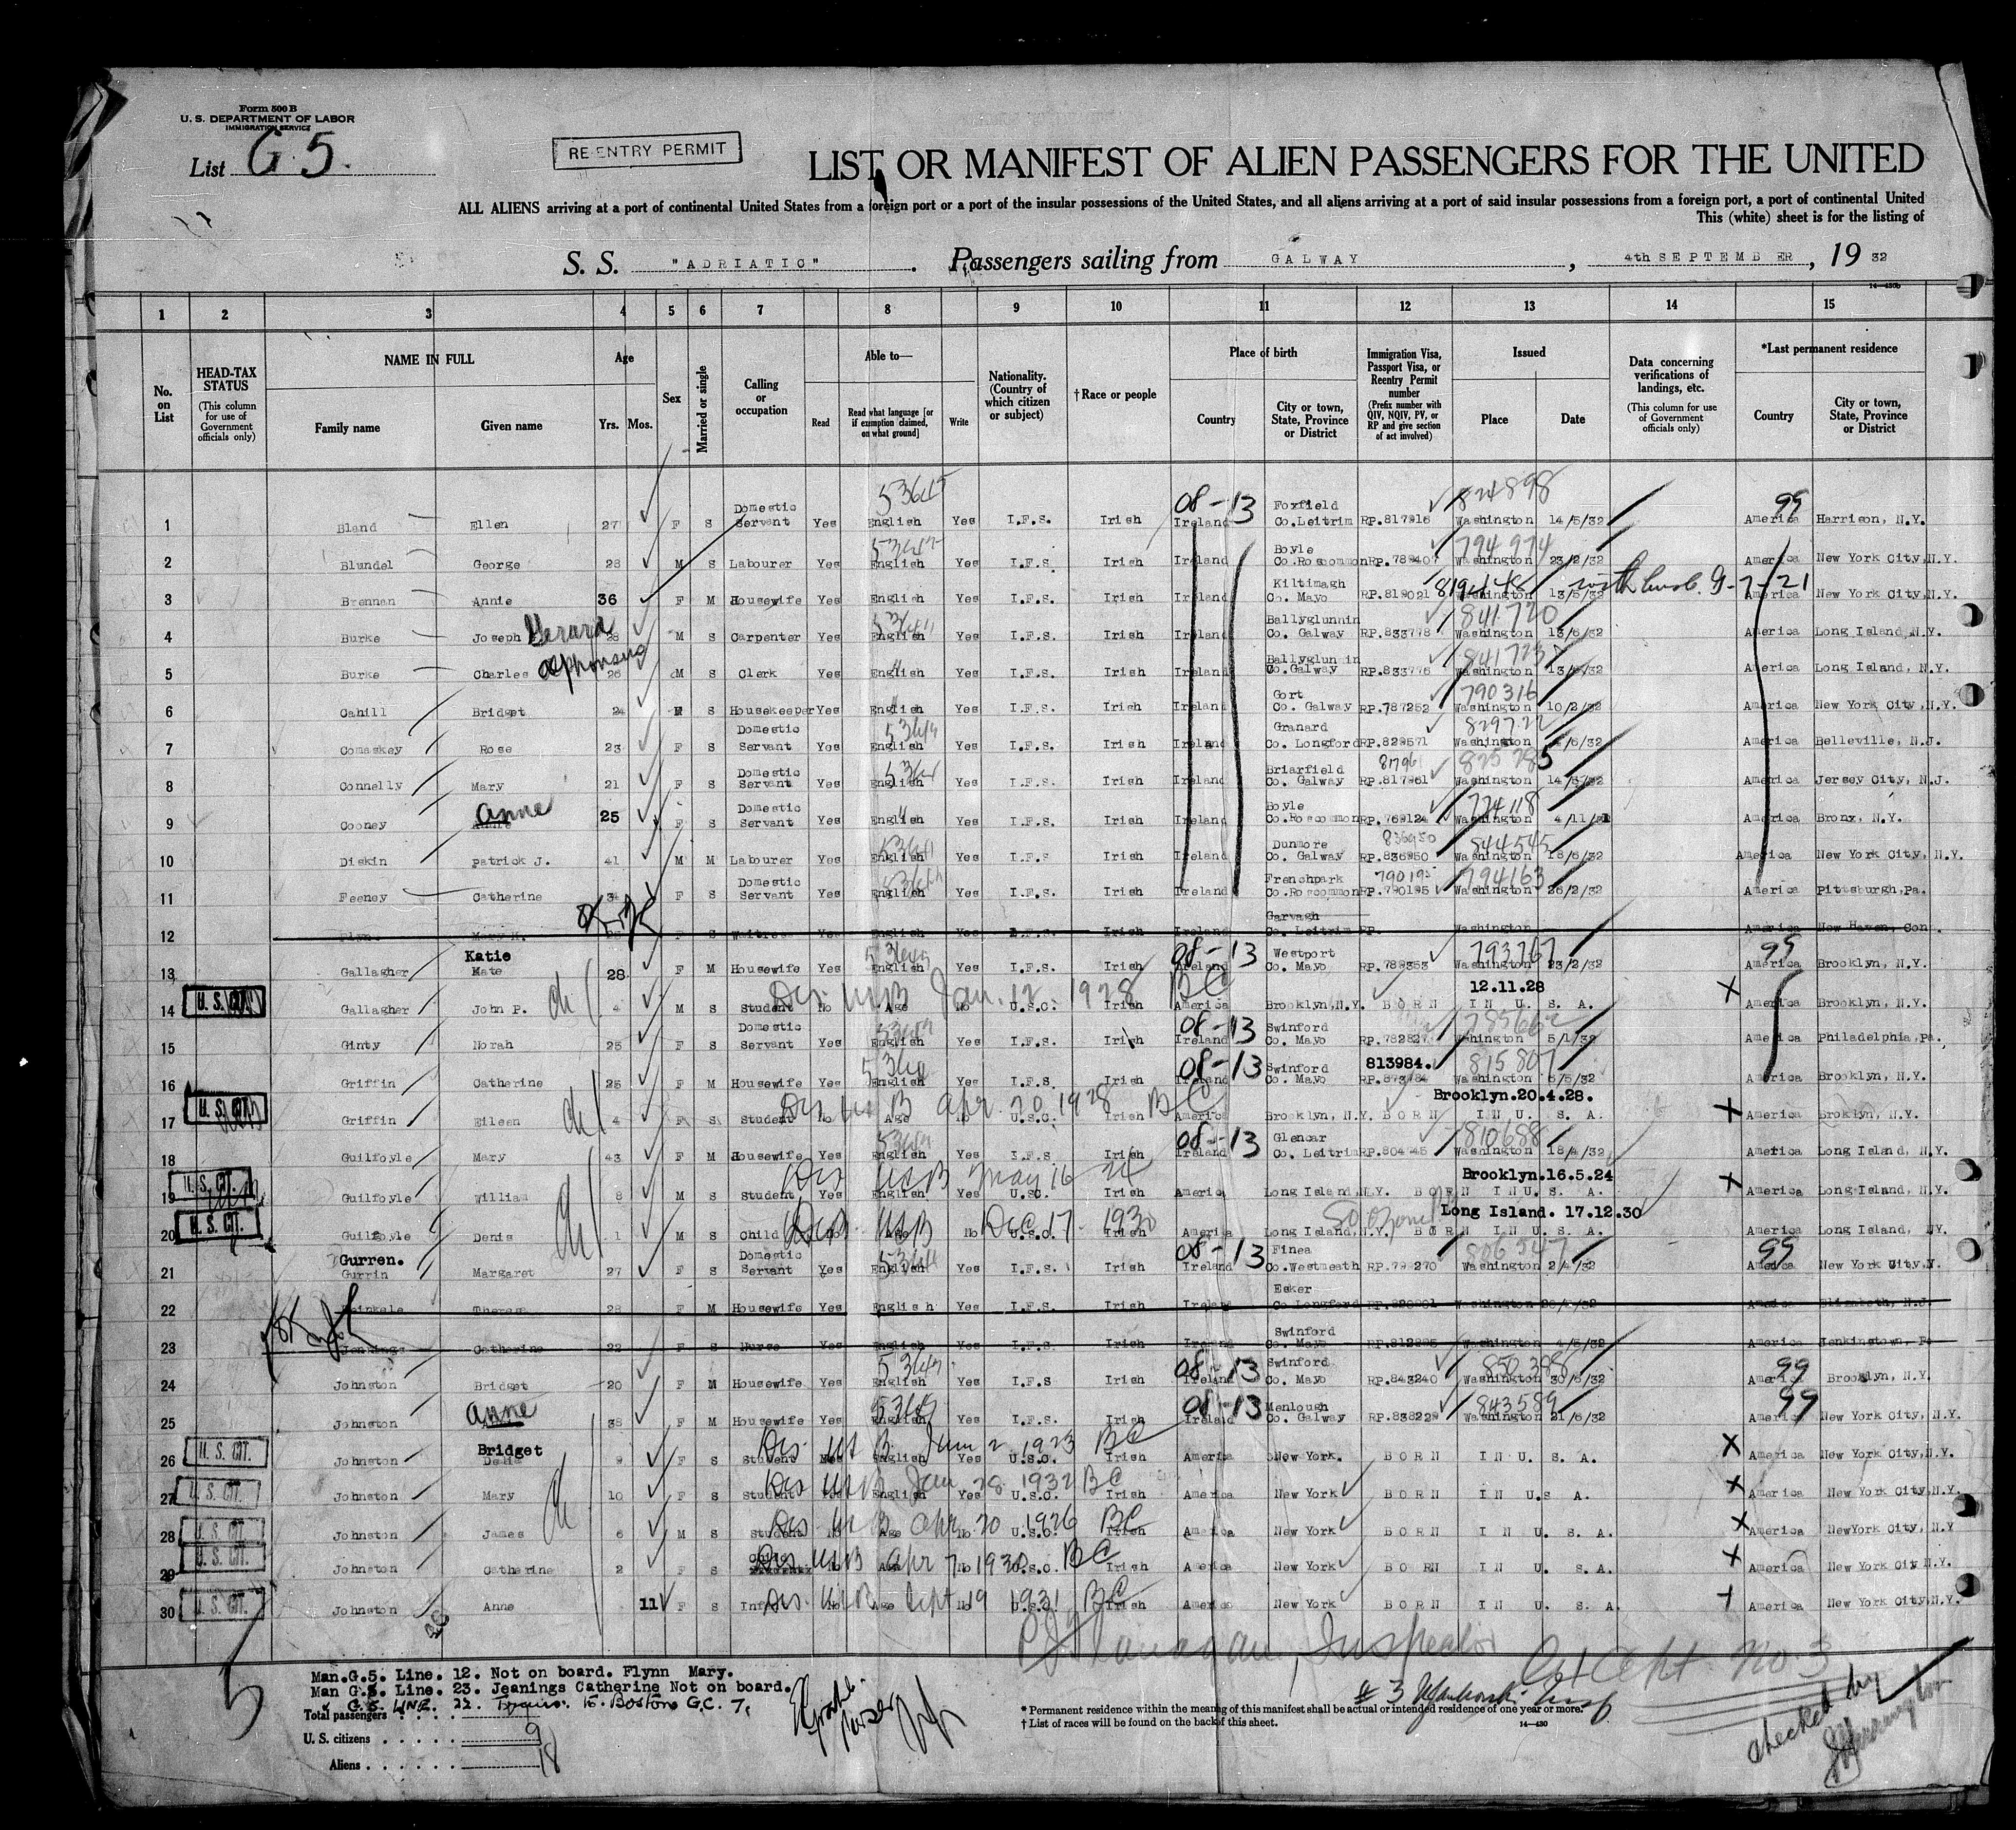 Form 500 B
U. S. DEPARTMENT OF LABOR
IMMIGRATION SERVICE
List G 5.
RE-ENTRY PERMIT
LIST OR MANIFEST OF ALIEN PASSENGERS FOR THE UNITED
ALL ALIENS arriving at a port of continental United States from a foreign port or a port of the insular possessions of the United States, and all aliens arriving at a port of said insular possessions from a foreign port, a port of continental United
This (white) sheet is for the listing of
S. S. "ADRIATIC". Passengers sailing from GALWAY, 4th SEPTEMBER, 19 32
1 2 3 4 5 6 7 8 9 10 11 12 13 14 15
No. on List
HEAD-TAX STATUS (This column for use of Government officials only)
NAME IN FULL Family name Given name
Age Yrs. Mos.
Sex
Married or single
Calling or occupation
Able to— Read Read what language [or if exemption claimed, on what ground] Write
Nationality. (Country of which citizen or subject)
†Race or people
Place of birth Country City or town, State, Province or District
Immigration Visa, Passport Visa, or Reentry Permit number (Prefix number with QIV, NQIV, PV, or RP and give section of act involved)
Issued Place Date
Data concerning verifications of landings, etc. (This column for use of Government officials only)
*Last permanent residence Country City or town, State, Province or District
1 Bland Ellen 27 F S Domestic Servant Yes English Yes I.F.S. Irish 08-13 Ireland Foxfield Co.Leitrim RP.817916 824898 Washington 14/5/32 99 America Harrison, N.Y.
2 Blundel George 28 M S Labourer Yes English Yes I.F.S. Irish Ireland Boyle Co.Roscommon RP.789407 794974 Washington 23/2/32 America New York City, N.Y.
3 Brennan Annie 36 F M Housewife Yes English Yes I.F.S. Irish Ireland Kiltimagh Co. Mayo RP.819021 Washington 13/5/32 America New York City, N.Y.
4 Burke Joseph Gerard 28 M S Carpenter Yes English Yes I.F.S. Irish Ireland Ballyglunnin Co. Galway RP.833778 841720 Washington 13/6/32 America Long Island, N.Y.
5 Burke Charles Alphonsus 26 M S Clerk Yes English Yes I.F.S. Irish Ireland Ballyglunnin Co. Galway RP.833776 Washington 13/6/32 America Long Island, N.Y.
6 Cahill Bridget 24 S Housekeeper Yes English Yes I.F.S. Irish Ireland Gort Co. Galway RP.787252 790316 Washington 10/2/32 America New York City, N.Y.
7 Comaskey Rose 23 F S Domestic Servant Yes English Yes I.F.S. Irish Ireland Granard Co. Longford RP.829571 Washington /6/32 America Belleville, N.J.
8 Connelly Mary 21 F S Domestic Servant Yes English Yes I.F.S. Irish Ireland Briarfield Co. Galway RP.817961 825785 Washington 14/5/32 America Jersey City, N.J.
9 Cooney Anne 25 F S Domestic Servant Yes English Yes I.F.S. Irish Ireland Boyle Co.Roscommon RP.769124 774118 Washington 4/11/31 America Bronx, N.Y.
10 Diskin Patrick J. 41 M M Labourer Yes English Yes I.F.S Irish Ireland Dunmore Co. Galway 836950 RP.836950 844545 Washington 18/6/32 America New York City, N.Y.
11 Feeney Catherine 31 F S Domestic Servant Yes English Yes I.F.S. Irish Ireland Frenchpark Co.Roscommon 790195 RP.790195 794163 Washington 26/2/32 America Pittsburgh, Pa.
12 Flynn Mary K. F S Waitress Yes English Yes I.F.S. Irish Ireland Garvagh Co. Leitrim RP. Washington America New Haven, Con.
13 Gallagher Katie Kate 28 F M Housewife Yes English Yes I.F.S. Irish 08-13 Ireland Westport Co. Mayo RP.789353 793767 Washington 23/2/32 99 America Brooklyn, N.Y.
14 U. S. CIT. Gallagher John P. 4 M S Student No Age No U.S.C. Jan. 12 1928 BC Irish America Brooklyn, N.Y. BORN IN U. S. A. 12.11.28 X America Brooklyn, N.Y.
15 Ginty Norah 25 F S Domestic Servant Yes English Yes I.F.S. Irish 08-13 Ireland Swinford Co. Mayo RP.782827 785662 Washington 5/1/32 America Philadelphia, Pa.
16 Griffin Catherine 25 F M Housewife Yes English Yes I.F.S. Irish 08-13 Ireland Swinford Co. Mayo 813984. 815807 Washington 6/5/32 America Brooklyn, N.Y.
17 U. S. CIT. Griffin Eileen 4 F S Student No Age No U.S.C. Apr. 20, 1928 BC Irish America Brooklyn, N.Y. BORN IN U. S. A. Brooklyn.20.4.28. X America Broklyn, N.Y.
18 Guilfoyle Mary 43 F M Housewife Yes English Yes I.F.S Irish 08-13 Ireland Glencar Co. Leitrim RP.804745 810688 Washington 18/4/32 America Long Island, N.Y
19 U. S. CIT. Guilfoyle William 8 M S Student Yes English Yes U.S.C. May 16 24 Irish America Long Island, N.Y. BORN IN U. S. A. Brooklyn.16.5.24 X America Long Island, N.Y.
20 U. S. CIT. Guilfoyle Denis 1 M S Child No Age No U.S.C. Dec. 17. 1930 Irish America Long Island, N.Y. BORN IN U. S. A. Long Island. 17.12.30 America Long Island, NY.
21 Gurren. Gurrin Margaret 27 F S Domestic Servant Yes English Yes I.F.S. Irish 08-13 Ireland Finea Co.Westmeath RP.799270 806547 Washington 2/4/32 99 America New York City, N.Y.
22 Theresa 28 F M Housewife Yes English Yes I.F.S. Irish Ireland Esker Co Longford Washington America Elizabeth, N.J.
23 Jennings Catherine 22 F S Nurse Yes English Yes I.F.S. Irish Ireland Swinford Co. Mayo RP.812895 Washington 4/5/32 America Jenkinstown, Pa
24 Johnston Bridget 20 F M Housewife Yes English Yes I.F.S Irish 08-13 Ireland Swinford Co. Mayo RP.843240 850398 Washington 30/6/32 99 America Brooklyn, N.Y.
25 Johnston Anne 38 F M Housewife Yes English Yes I.F.S. Irish 08-13 Ireland Menlough Co. Galway RP.838229 843589 Washington 21/6/32 99 America New York City, N.Y.
26 U. S. CIT. Johnston Bridget Delia 9 F S Student Yes English Yes U.S.C. 1923 BC Irish America New York. BORN IN U. S. A. X America New York City, N.Y.
27 U. S. CIT. Johnston Mary 10 F S Student Yes English Yes U.S.C. Jan 28 1932 BC Irish America New York BORN IN U.S A. X America New York City, N.Y.
28 U. S. CIT. Johnston James 6 M S Student No Age No U.S.C. Apr 20 1926 BC Irish America New York BORN IN U. S. A. X America NewYork City, N.Y
29 U. S. CIT. Johnston Catherine 2 F S Child No Age No U.S.C. Apr 7 1930 BC Irish America New York BORN IN U. S.A. X America New York City N.Y.
30 U. S. CIT. Johnston Anne 11 F S Infant No Age No U.S.C. Sept 19 1931 BC Irish America New York BORN IN U. S A. America New York City, N.Y.
Inspector
No. 3
Man.G.5. Line. 12. Not on board. Flynn Mary.
Man G.5. Line. 23. Jeanings Catherine Not on board.
G.5. LINE. 22. Transf. to Boston G.C. 7.
Total passengers
U. S. citizens 9
Aliens 18
* Permanent residence within the meaning of this manifest shall be actual or intended residence of one year or more.
† List of races will be found on the back of this sheet. 14—430
checked by